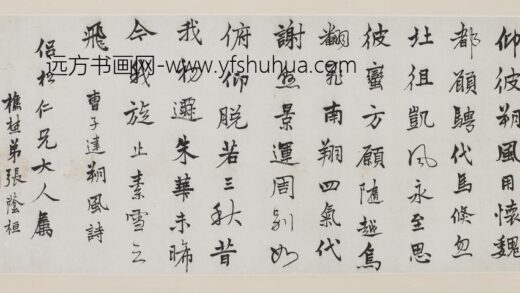 仰彼朔風用懷魏
都願騁代馬倏忽
北徂凱風永至思
彼蠻方願隨越鳥
翻飛南翔四氣代
謝懸景運周別如
俯仰脫若三秋昔
我初遷朱華未晞
今我旋止素雪云
飛
曹子建朔風詩
侶松仁兄大人屬
樵埜弟張蔭桓
远方书画网-www.yfshuhua.com